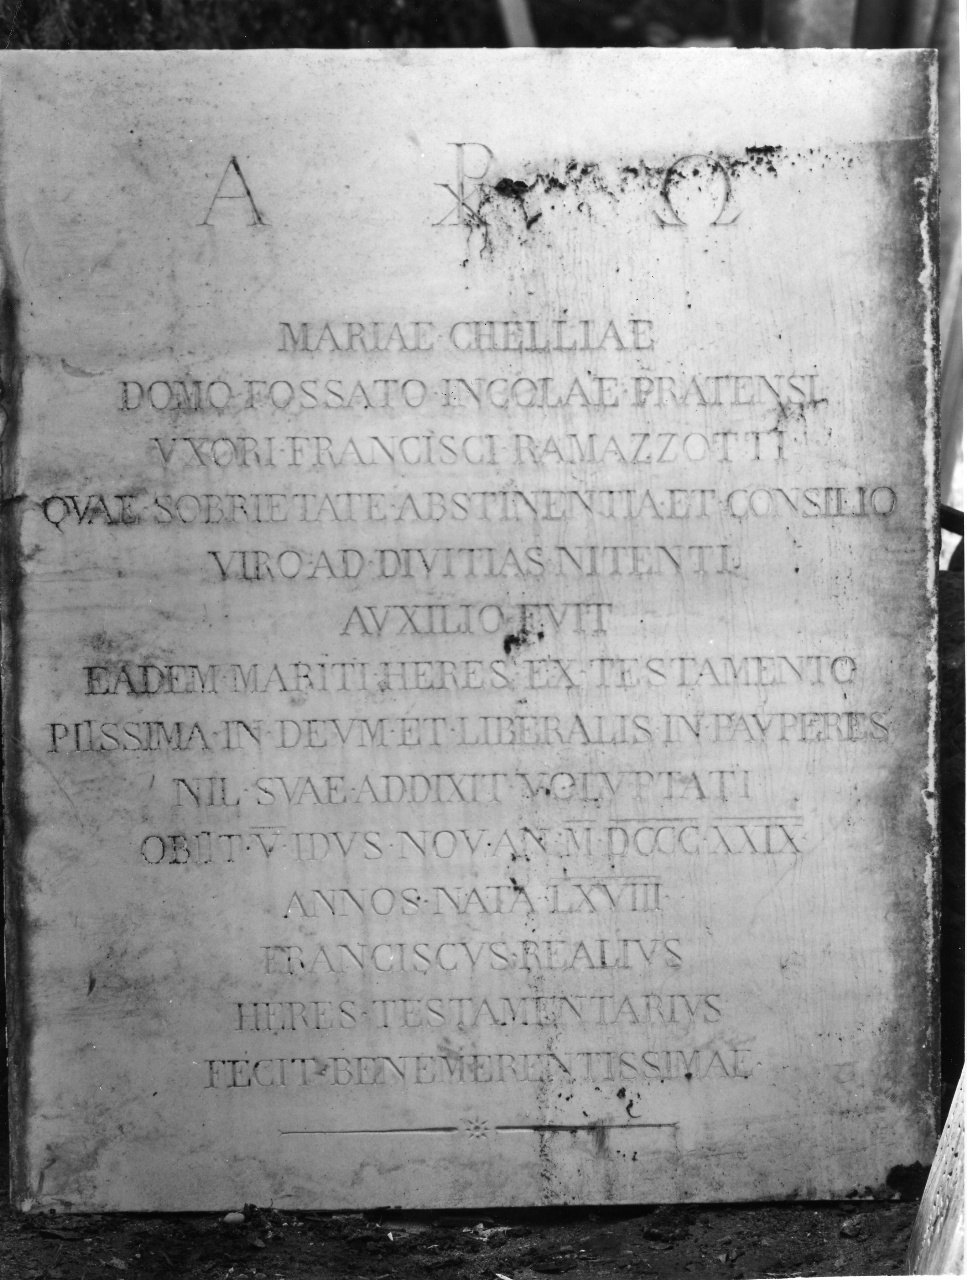 Α ☧ Ω
MARIAE·CHELLIAE
DOMO·FOSSATO·INCOLAE·PRATENSI
VXORI·FRANCISCI·RAMAZZOTTI
QVAE·SOBRIETATE·ABSTINENTIA·ET·CONSILIO
VIRO·AD·DIVITIAS·NITENTI
AVXILIO·FVIT
EADEM·MARITI·HERES·EX·TESTAMENTO
PIISSIMA·IN·DEVM·ET·LIBERALIS·IN·PAVPERES
NIL·SVAE·ADDIXIT·VOLVPTATI
OBIIT·V̅·IDVS·NOV·AN·M̅·D̅C̅C̅C̅C̅·X̅X̅I̅X̅
ANNOS·NATA·L̅X̅V̅I̅I̅I̅
FRANCISCVS·REALIVS
HERES·TESTAMENTARIVS
FECIT·BENEMERENTISSIMAE